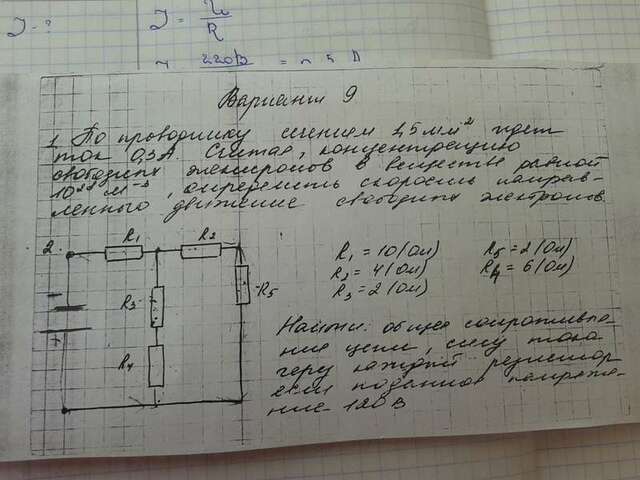 J - ?
J = U/R
220В
Вариант 9
1. По проводнику сечением 1,5 мм² идет
ток 0,3А. Считая, концентрацию
свободных электронов в веществе равной
10²² м⁻³, определить скорость направ-
ленного движение свободных электронов
2.
R1
R2
R3
R4
R5
R₁ = 10(Ом)
R₂ = 4(Ом)
R₃ = 2(Ом)
R₅ = 2(Ом)
R₄ = 6(Ом)
Найти: общее сопротивле-
ние цепи, силу тока
через каждый резистор
если поданное напряже-
ние 120 В